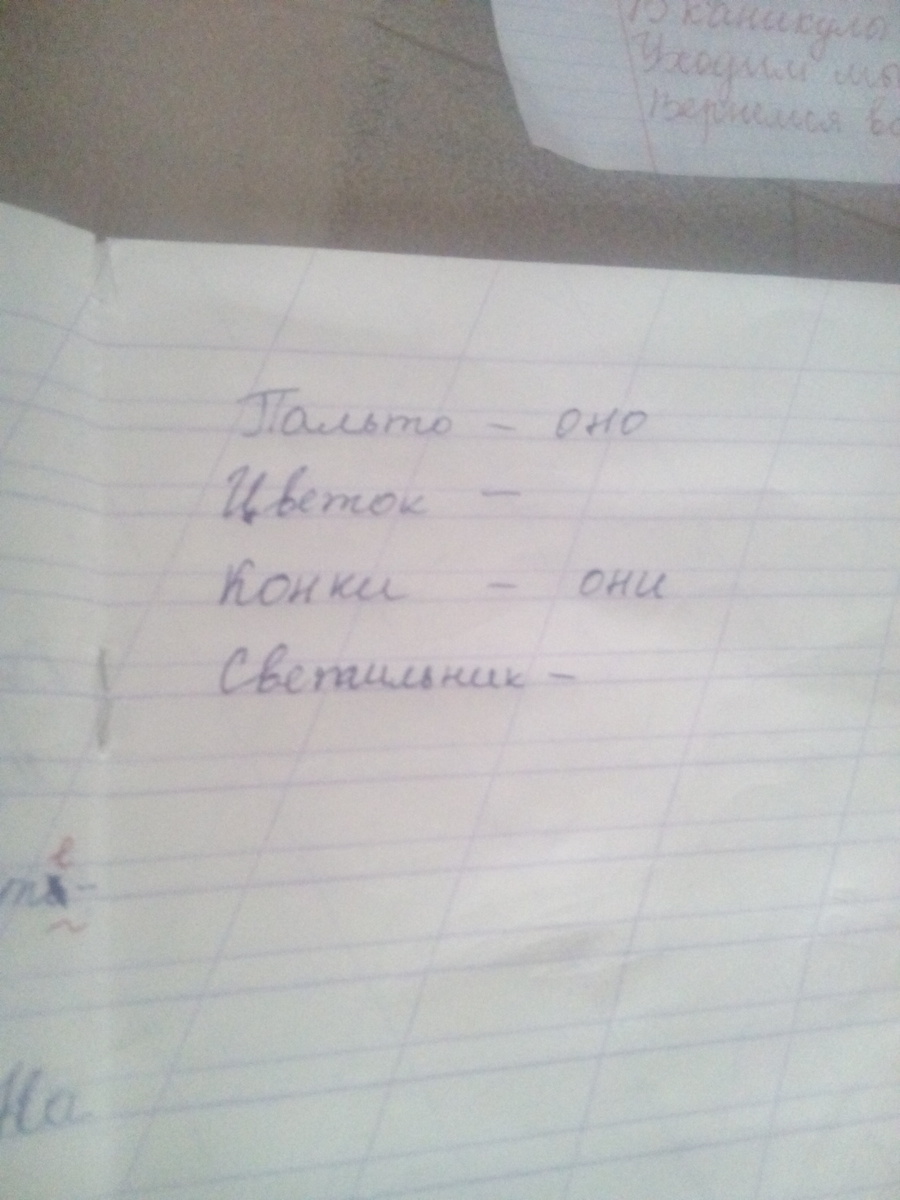 В каникулы
Уходим мы
Вернемся
Пальто - оно
Цветок -
Конки - они
Светильник -
е
На